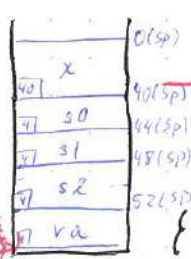 0(sp)
x
40 40(sp)
s0 44(sp)
s1 48(sp)
s2 52(sp)